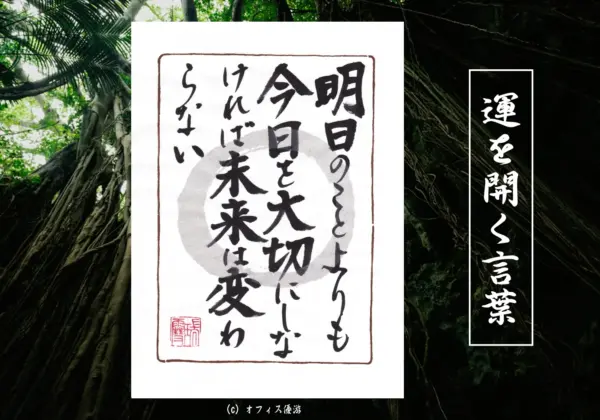 運を開く言葉
明日のことよりも
今日を大切にしな
ければ未来は変わ
らない
(c) オフィス優游